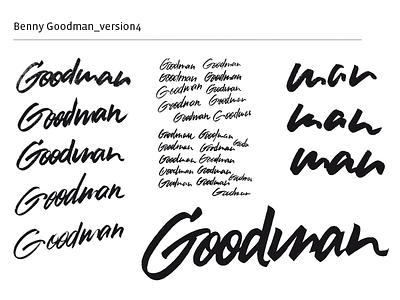 Benny Goodman_version4
Goodman
Goodman
Goodman
Goodman
Goodman
Goodman Goodman
Goodman Goodman
Goodman Goodman
Goodman Goodman
Goodman Goodman
Goodman Goodman
Goodman
Goodman Goodman
Goodman Goodman
Goodman Goodman
Goodman
Goodman Goodman
Goodman
man
man
man
Goodman